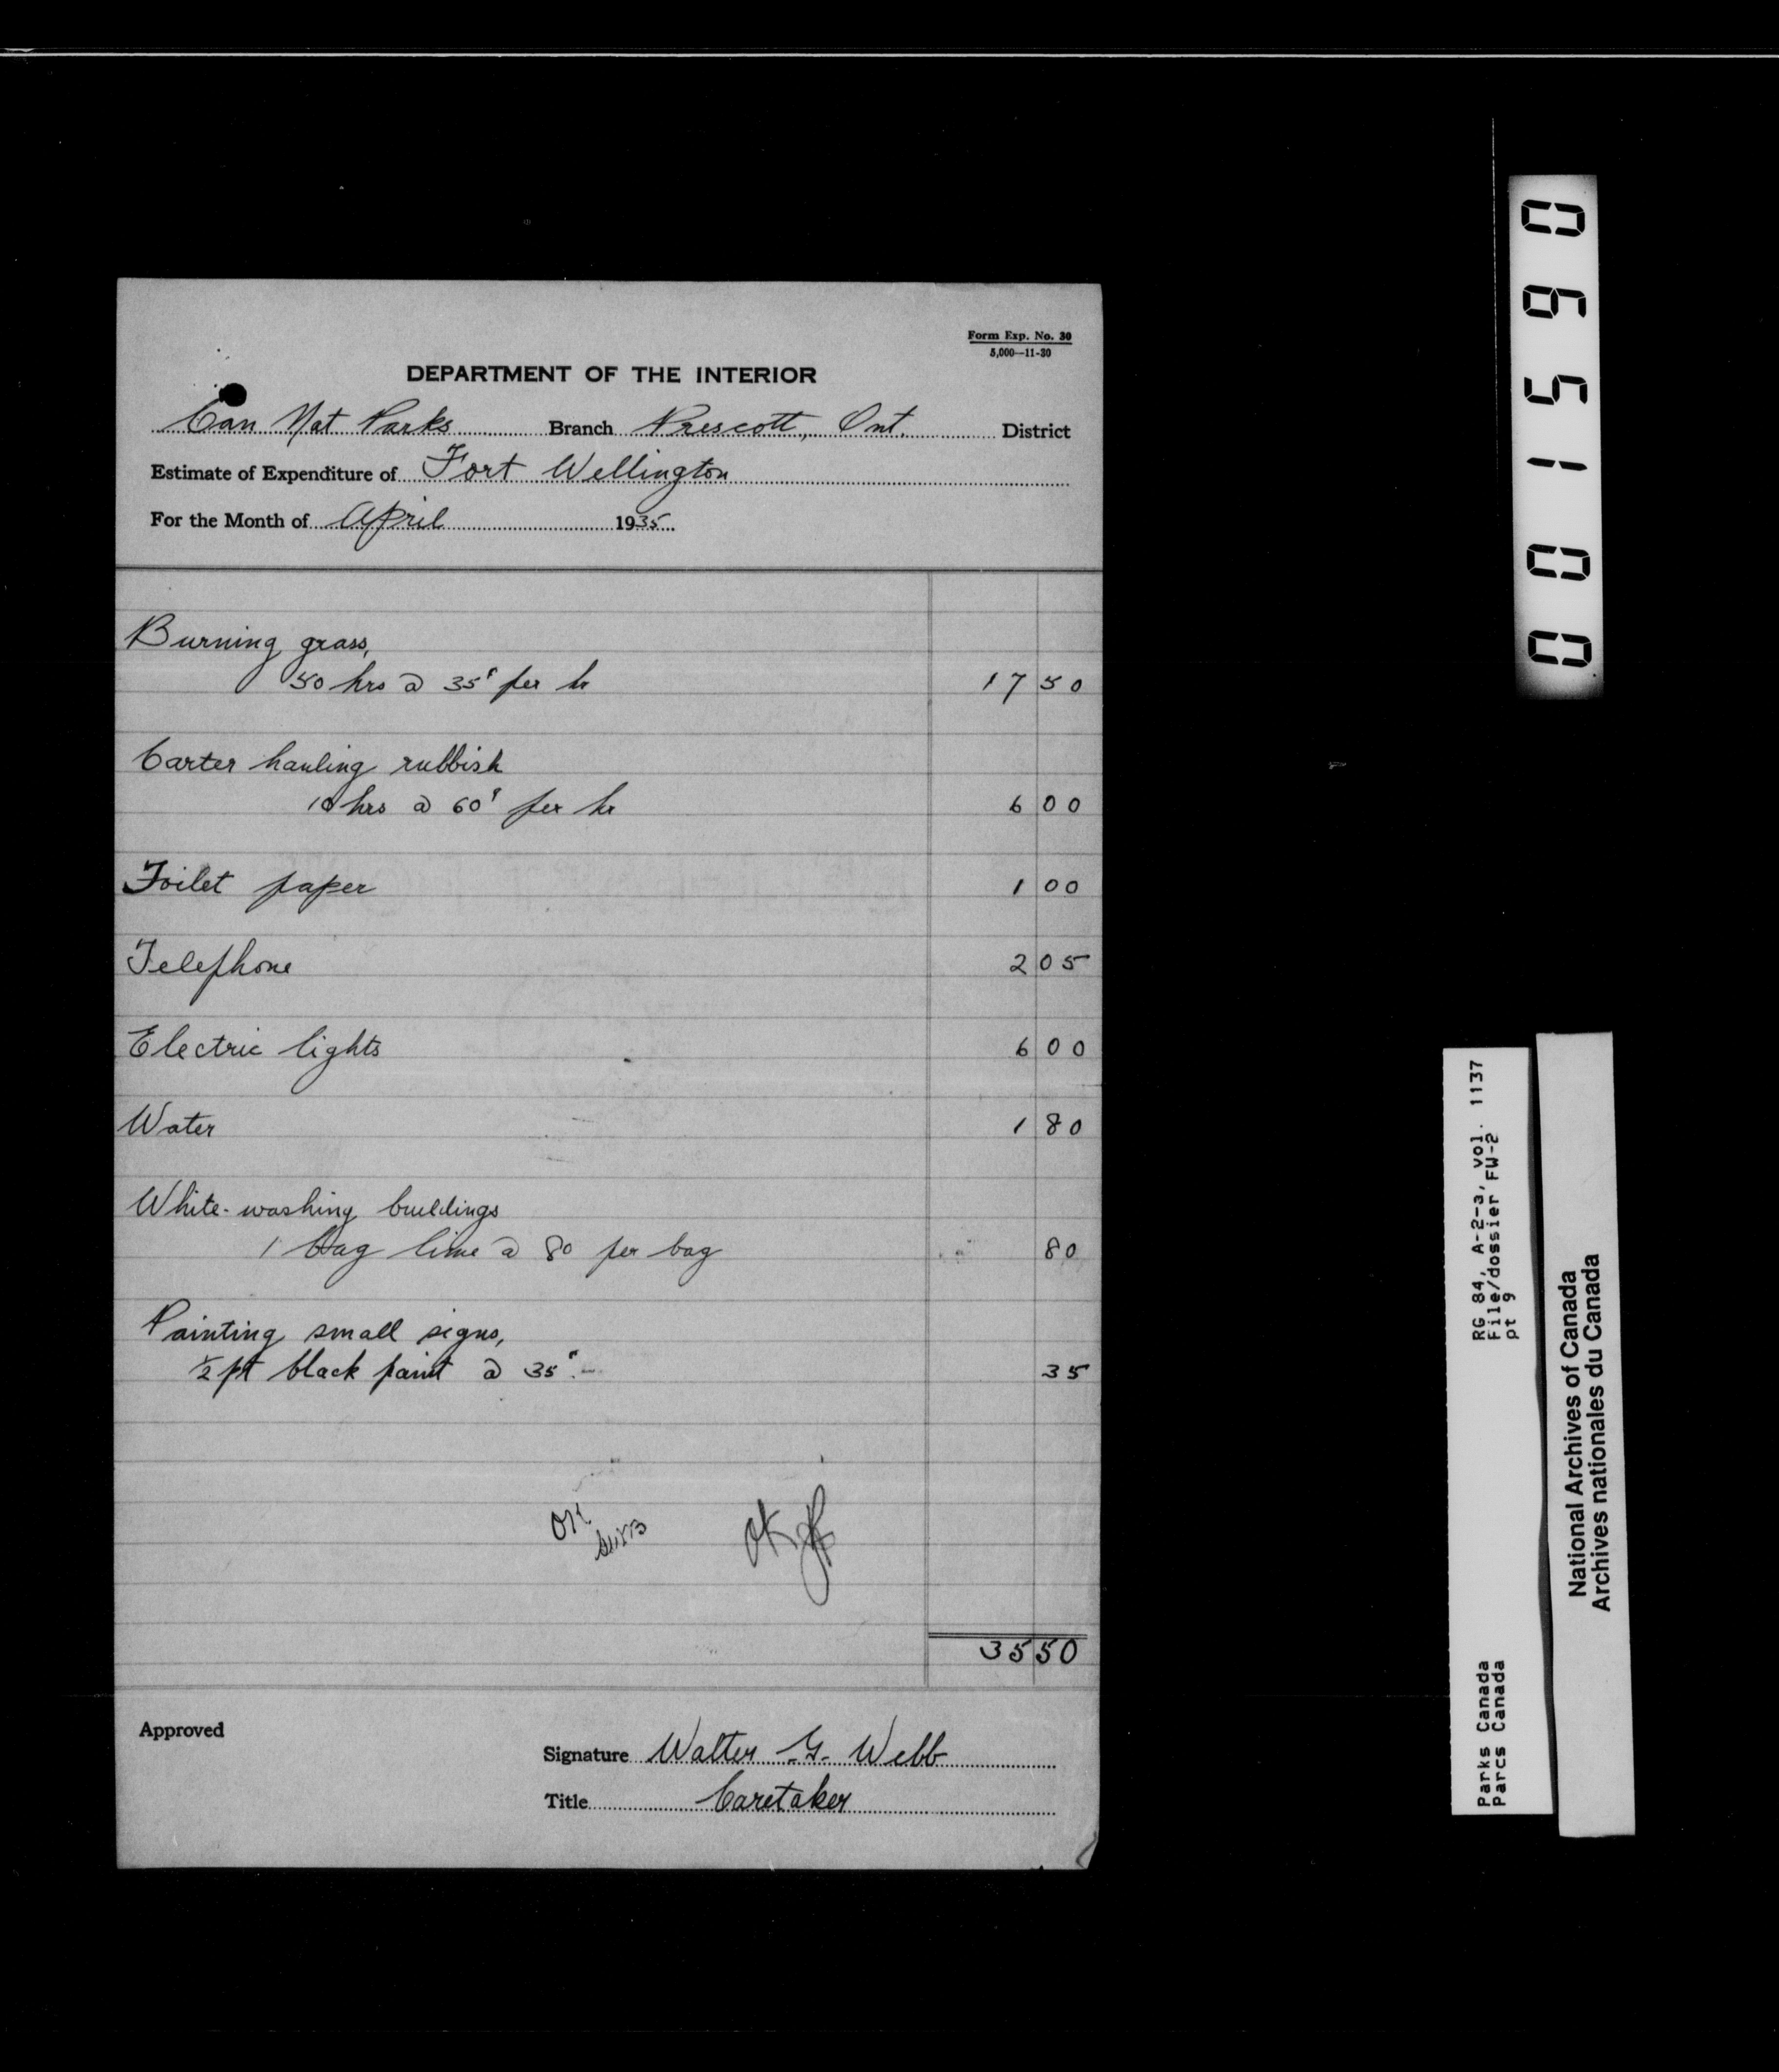 Form Exp. No. 30
5,000—11-30
DEPARTMENT OF THE INTERIOR
Can Nat Parks Branch Prescott, Ont. District
Estimate of Expenditure of Fort Wellington
For the Month of April 1935
Burning grass,
50 hrs @ 35¢ per hr 17 50
Carter hauling rubbish
10 hrs @ 60¢ per hr 6 00
Toilet paper 1 00
Telephone 2 05
Electric lights 6 00
Water 1 80
White-washing buildings
1 bag lime @ 80 per bag 80
Painting small signs,
½ pt black paint @ 35¢ 35
OK
OK
35 50
Approved
Signature Walter G. Webb
Title Caretaker
001590
RG 84, A-2-3, vol. 1137
File/dossier FW-2
pt 9
Parks Canada
Parcs Canada
National Archives of Canada
Archives nationales du Canada